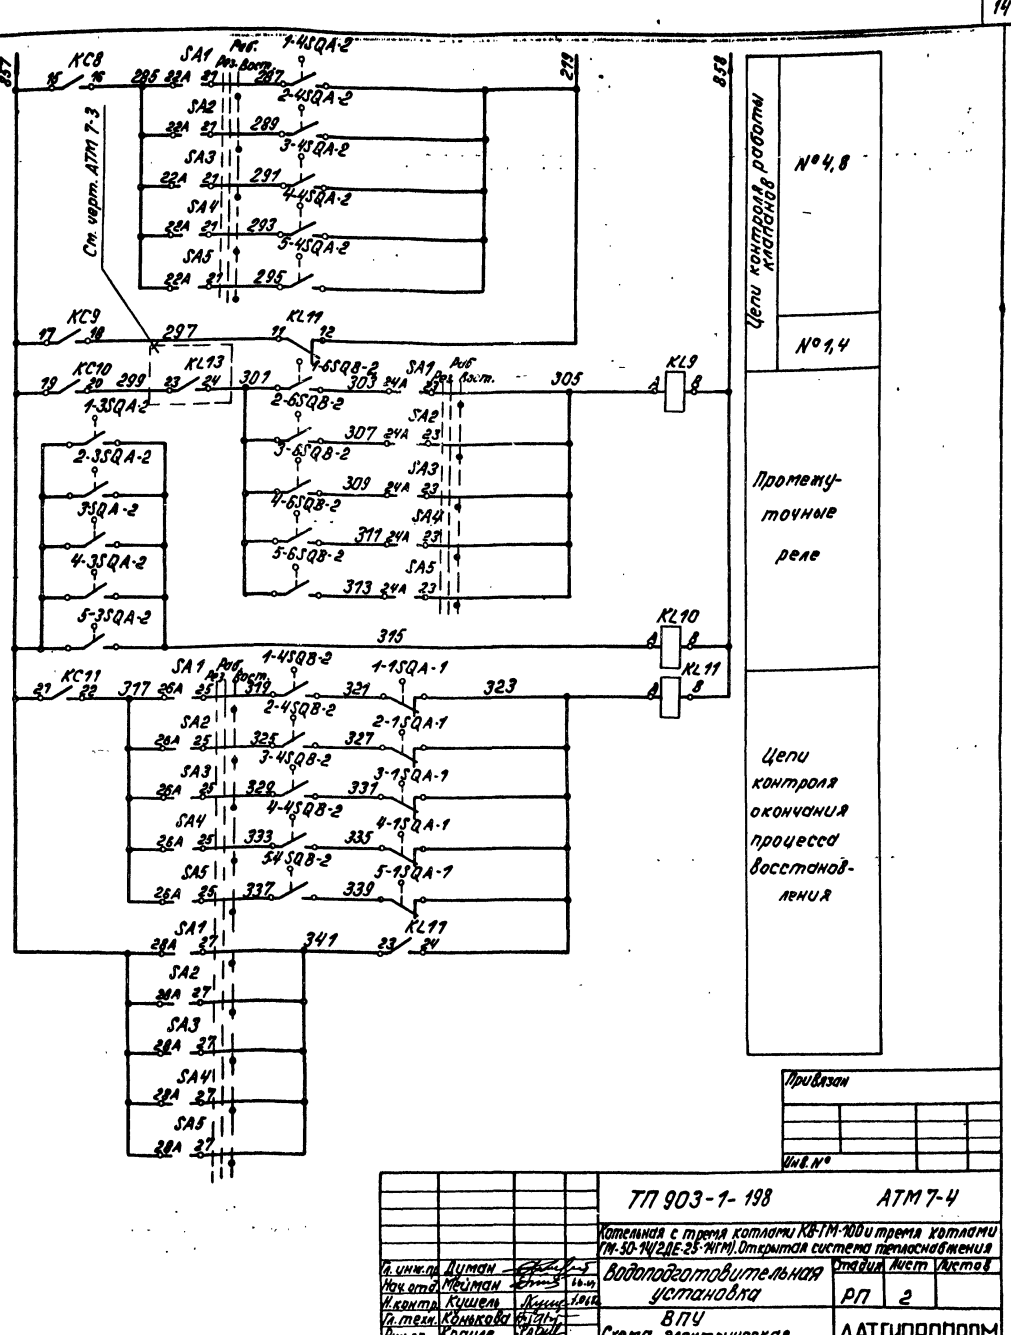 14
857
КС8
15
16
285
SA1
22А
21
Раб.
Рез.
Вост.
287
1-4SQA-2
219
858
2-4SQA-2
SA2
22А
21
289
3-4SQA-2
SA3
22А
21
291
4-4SQA-2
SA4
22А
21
293
5-4SQA-2
SA5
22А
21
295
См. черт. АТМ 7-3
КС9
17
18
297
KL11
11
12
КС10
19
20
299
KL13
23
24
301
1-6SQB-2
303
24А
SA1
23
Раб
Рез.
Вост.
305
KL9
А
В
2-6SQB-2
307
24А
SA2
23
3-6SQB-2
309
24А
SA3
23
4-6SQB-2
311
24А
SA4
23
5-6SQB-2
313
24А
SA5
23
1-3SQA-2
2-3SQA-2
3SQA-2
4-3SQA-2
5-3SQA-2
315
KL10
А
В
КС11
21
22
317
SA1
26А
25
Раб.
Рез.
Вост.
319
1-4SQB-2
321
1-1SQA-1
323
KL11
А
В
SA2
26А
25
325
2-4SQB-2
327
2-1SQA-1
SA3
26А
25
329
3-4SQB-2
331
3-1SQA-1
SA4
26А
25
333
4-4SQB-2
335
4-1SQA-1
SA5
26А
25
337
54SQB-2
339
5-1SQA-1
SA1
28А
27
341
KL11
23
24
SA2
28А
27
SA3
28А
27
SA4
28А
27
SA5
28А
27
Цепи контроля работы
клапанов
№4,8
№1,4
Промежу-
точные
реле
Цепи
контроля
окончания
процесса
восстанов-
ления
Привязан
Инв.№
ТП 903-1-198
АТМ7-4
Котельная с тремя котлами КВ-ГМ-100 и тремя котлами
ГМ-50-14/2ДЕ-25-14ГМ). Открытая система теплоснабжения
Гл. инж.пр.
Думан
Нач.отд.
Мейман
Н.контр.
Кушель
Гл.техн.
Конькова
Водоподготовительная
установка
Стадия
Лист
Листов
РП
2
ВПУ
Схема электрическая
ЛАТГИПРОПРОМ